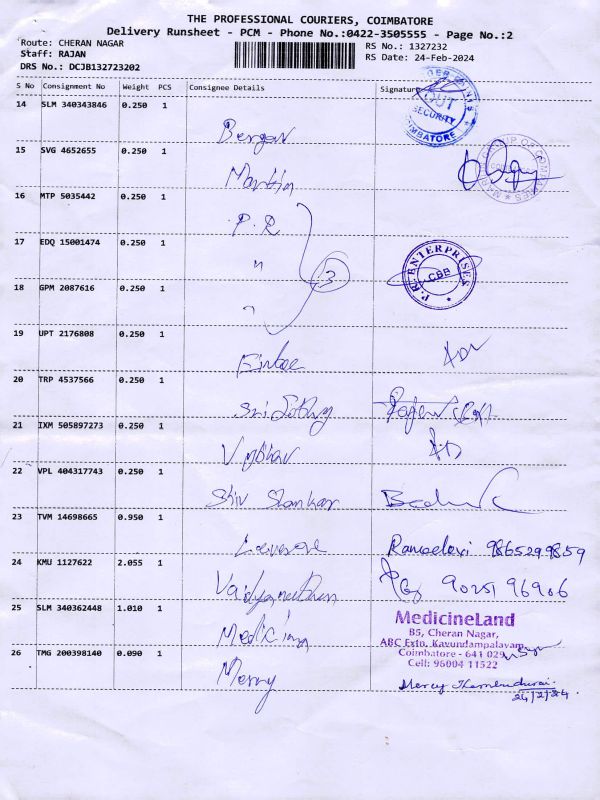 THE PROFESSIONAL COURIERS, COIMBATORE
Delivery Runsheet - PCM - Phone No.:0422-3505555 - Page No.:2
Route: CHERAN NAGAR
RS No.: 1327232
Staff: RAJAN
RS Date: 24-Feb-2024
DRS No.: DCJB132723202
S No Consignment No Weight PCS Consignee Details Signature
OUT
SECURITY
COIMBATORE
14 SLM 340343846 0.250 1
Bergar
15 SVG 4652655 0.250 1
Martin
16 MTP 5035442 0.250 1
P.R
17 EDQ 15001474 0.250 1
"
3
P.R. ENTERPRISES
CBE
18 GPM 2087616 0.250 1
"
19 UPT 2176808 0.250 1
20 TRP 4537566 0.250 1
Sri
21 IXM 505897273 0.250 1
22 VPL 404317743 0.250 1
Shiv Shankar
23 TVM 14698665 0.950 1
9865299859
24 KMU 1127622 2.055 1
90251 96906
25 SLM 340362448 1.010 1
MedicineLand
B5, Cheran Nagar,
ABC Extn. Kavundampalayam
Coimbatore - 641 029
Cell: 96004 11522
26 TMG 200398140 0.090 1
Mercy
24/2/24